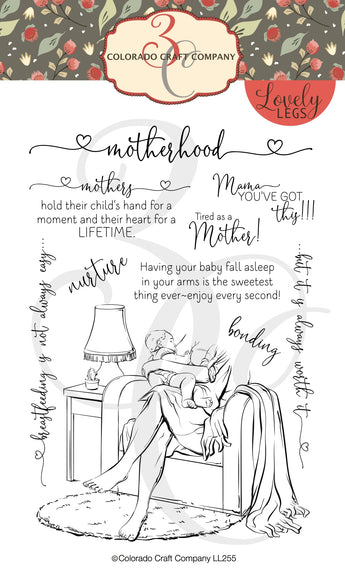 3C
COLORADO CRAFT COMPANY
Lovely
LEGS
motherhood
mothers
hold their child's hand for a
moment and their heart for a
LIFETIME.
Mama
YOU'VE GOT
this!!!
Tired as a
Mother!
nurture
Having your baby fall asleep
in your arms is the sweetest
thing ever~enjoy every second!
bonding
breastfeeding is not always easy...
...but it is always worth it
©Colorado Craft Company LL255